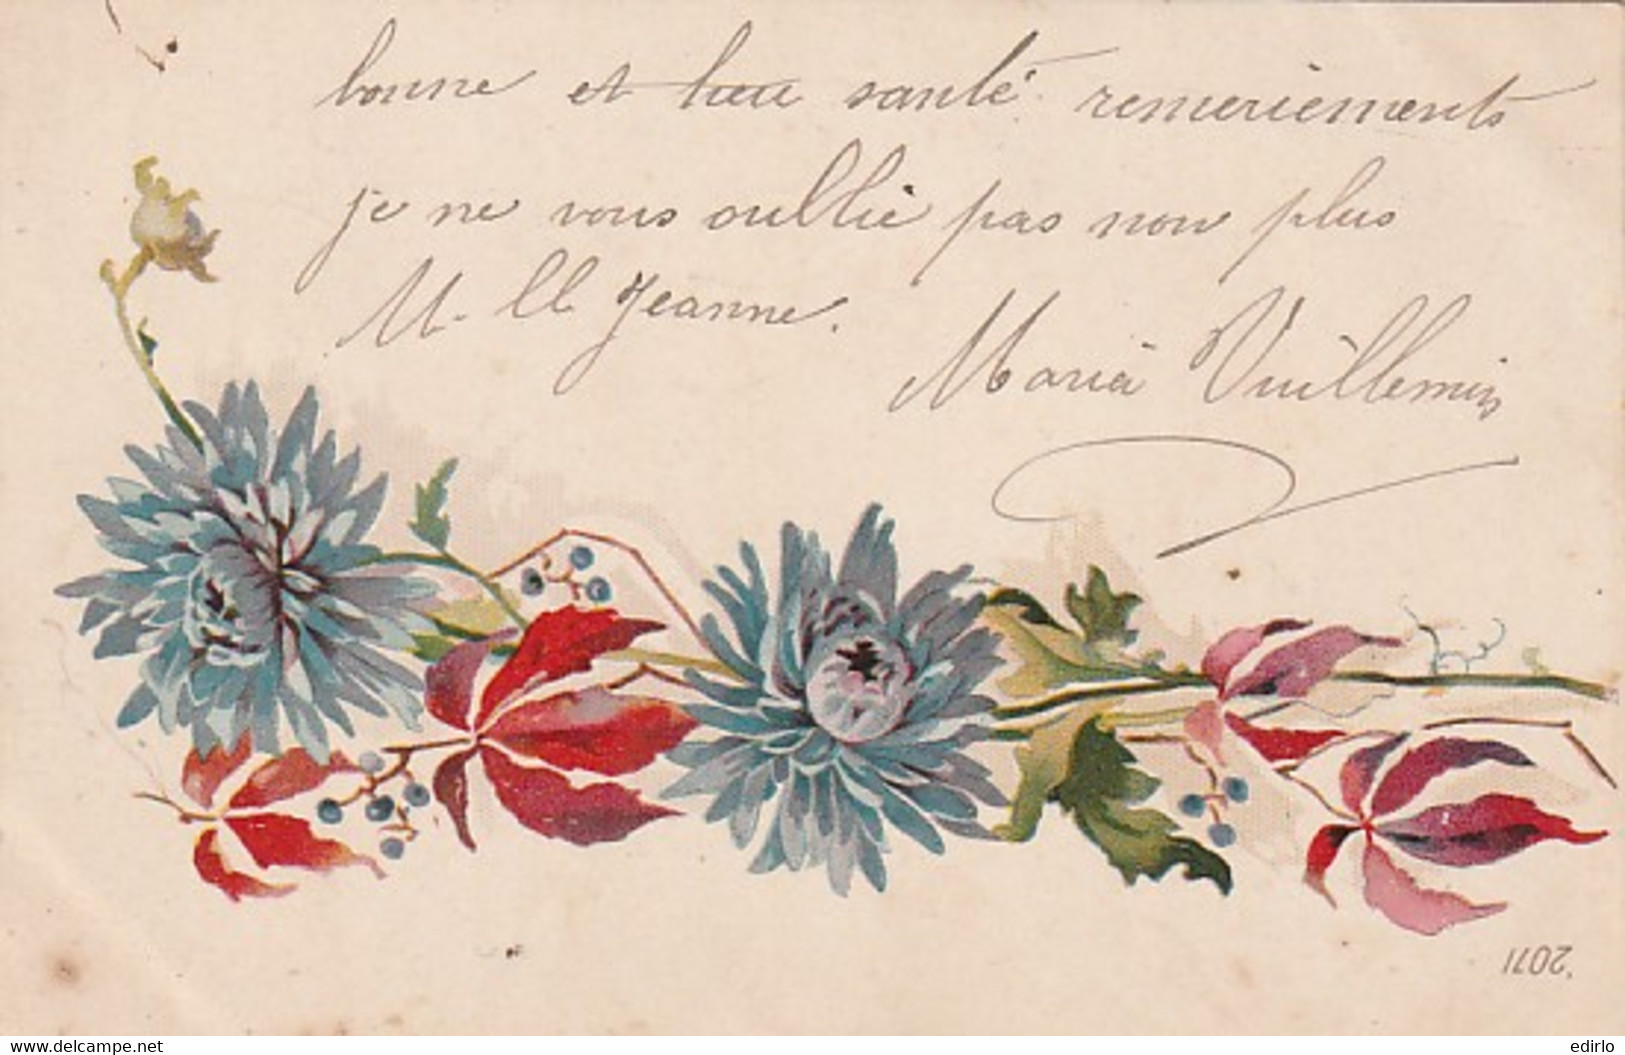 bonne et heu santé remerciements
je ne vous oublie pas non plus
M. lle Jeanne.
Maria Vuillemin
2071
www.delcampe.net
edirlo